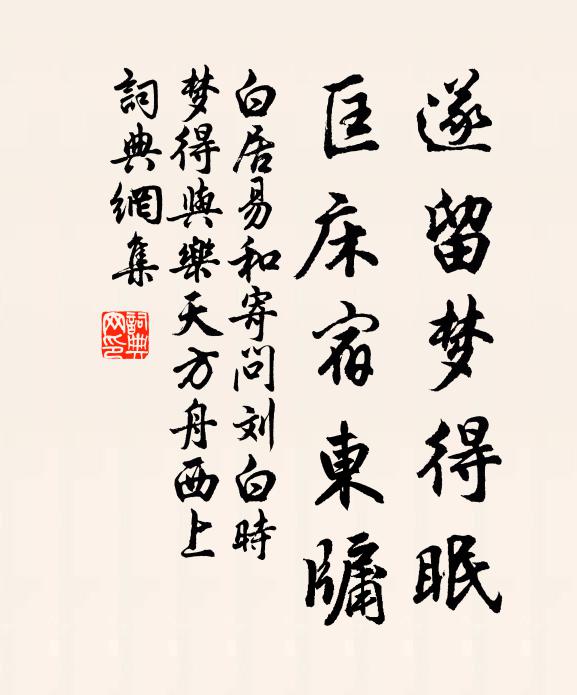 遂留梦得眠
匡床宿東牖
白居易和寄问刘白時
梦得與樂天方舟西上
詞典網集
詞典网印